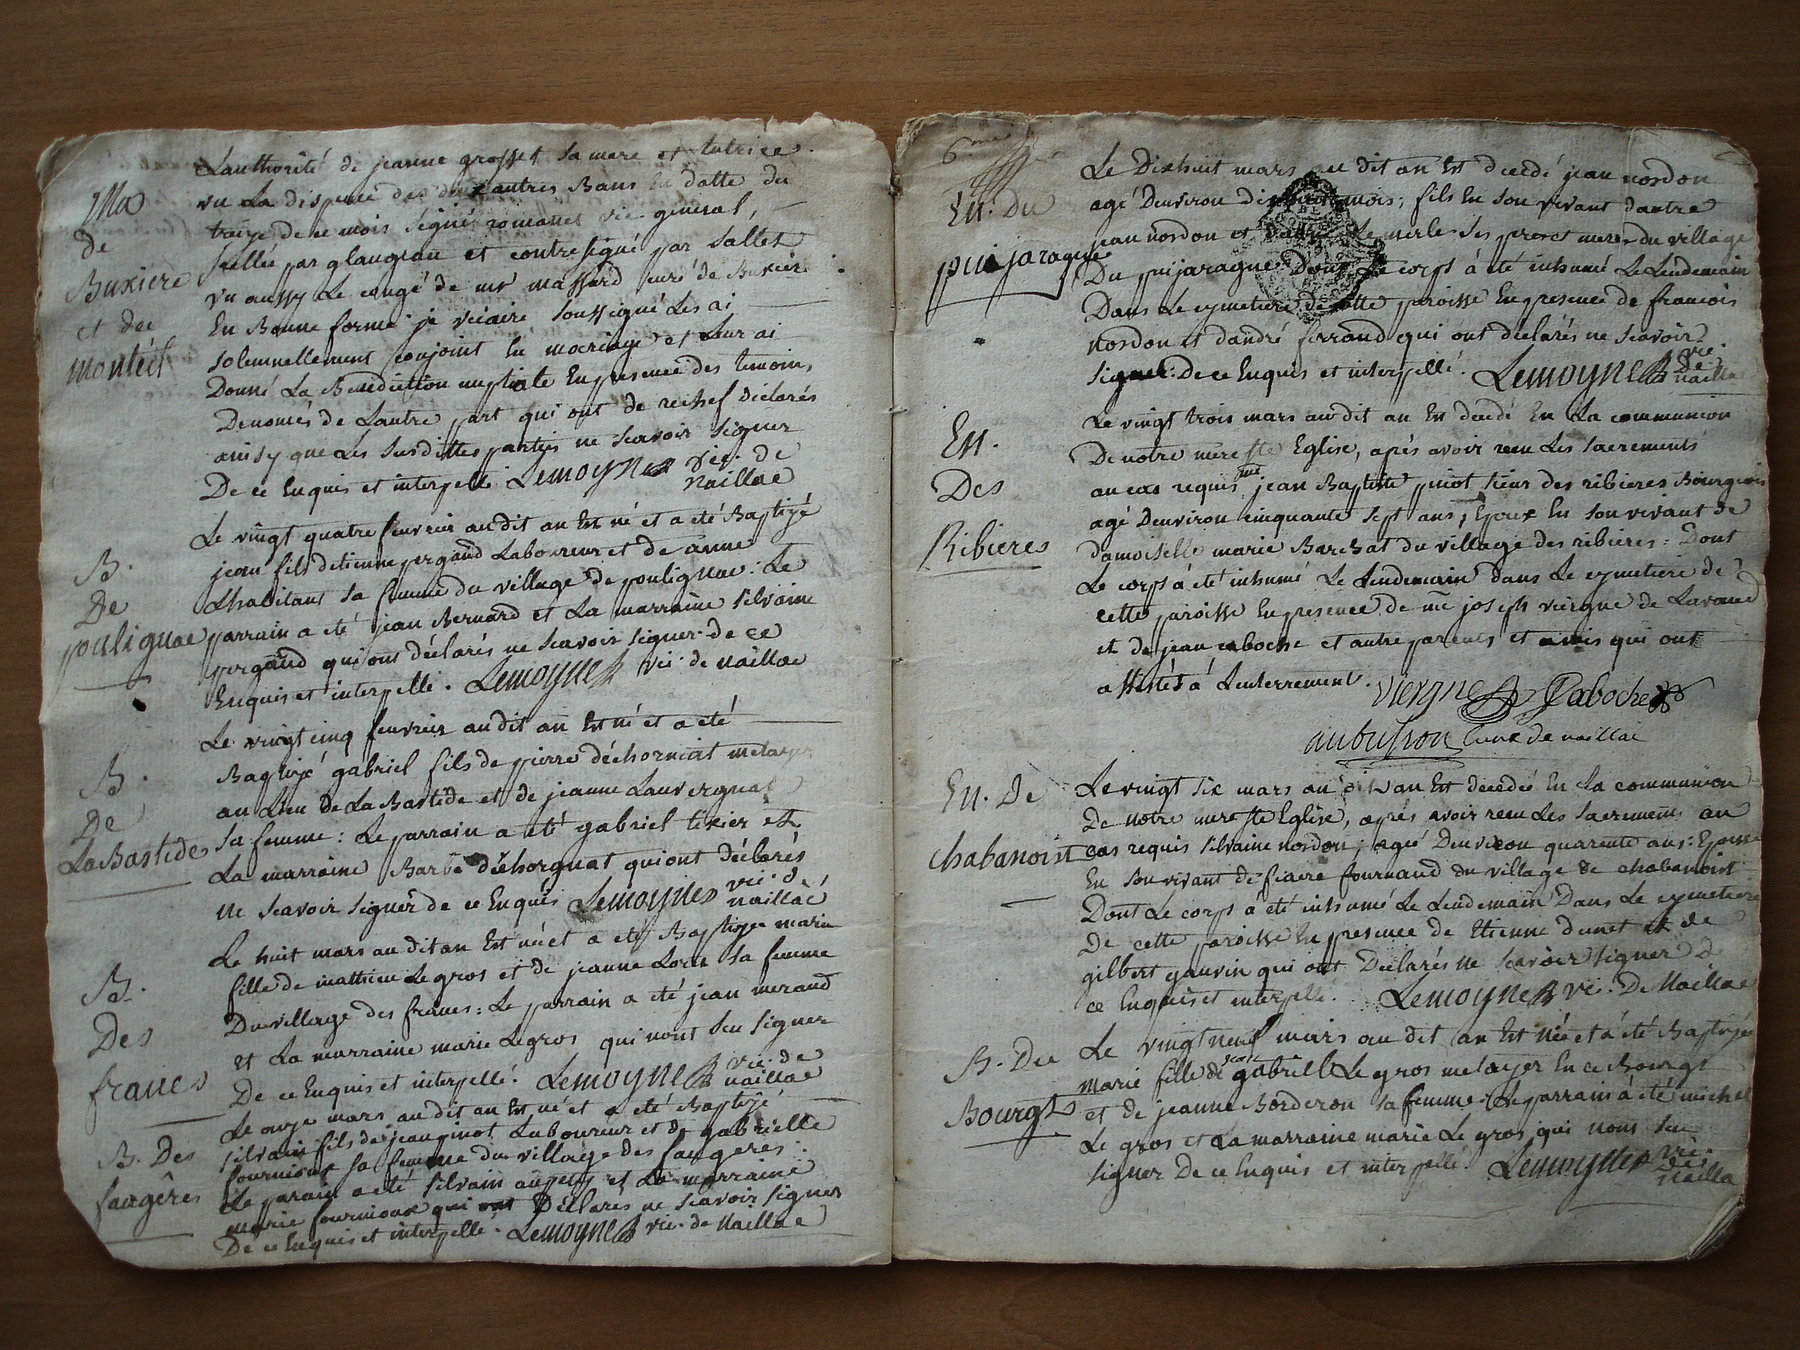 Lauthorité de jeanne grosset sa mere et tutrice.
vu La dispence des deux autres Bans En datte du
treize de ce mois signé romanet vic general,
scellée par glaugeau et contresigné par Sallet
vu aussy Le congé de mr massard curé de Buxiere
En Bonne forme je vicaire soussigné Les ai
solemnellement conjoint En mariage et Leur ai
Donné La Benediction nuptiale En presence des temoins
Denomés de Lautre part qui ont de rechef déclarés
ainsy que Les susdittes parties ne scavoir signer
De ce Enquis et interpellé Lemoyne vic. de naillac
Ma
de
Buxiere
et de
monteil
B.
De
poulignac
Le vingt quatre fevrier audit an Est né et a été Baptizé
jean fils detienne pergaud Laboureur et de anne
Lhabitant sa femme du village de poulignac: Le
parrain a été jean Bernard et La marraine silvaine
pergaud qui ont déclarés ne scavoir signer de ce
Enquis et interpellé. Lemoyne vic. de naillac
B.
De
La Bastide
Le vingt cinq fevrier audit an Est né et a été
Baptizé gabriel fils de pierre déchorniat metayer
au Lieu de La Bastide et de jeanne Lauvergnat
sa femme: Le parrain a été gabriel texier et
La marraine Barbe déchorgnat qui ont déclarés
ne scavoir signer de ce Enquis Lemoyne vic. d naillac
B.
Des
francs
Le huit mars audit an Est née et a été Baptizée marie
fille de mathieu Le gros et de jeanne sa femme
Du village des francs: Le parrain a été jean meraud
et La marraine marie Legros qui nont seu signer
De ce Enquis et interpellé. Lemoyne vic. de naillac
B. Des
faugères
Le onze mars audit an Est né et a été Baptizé
silvain fils de jean pinot Laboureur et de gabrielle
fournioux sa femme du village des faugeres.
Le parrain a été silvain aupetit et La marraine
marie fournioux qui ont Déclarés ne scavoir signer
De ce Enquis et interpellé. Lemoyne vic. de Naillac
6.me
En. Du
puijaragne
Le Dixhuit mars au dit an Est decedé jean nordon
agé Denviron mois; fils En son vivant dautre
jean nordon et Le merle ses pere et mere du village
Du puijaragne Dont Le corps a été inhumé Le Lendemain
Dans Le cymetiere de cette paroisse En presence de francois
nordon et dandré ferrand qui ont déclarés ne scavoir
signer: De ce Enquis et interpellé. Lemoyne vic. de naillac
En.
Des
Ribieres
Le vingt trois mars audit an Est decedé En La communion
De notre mere ste Eglise, aprés avoir recu Les sacrements
au cas requis me jean Baptiste pinot sieur des ribieres Bourgeois
agé Denviron cinquante sept ans, Epoux En son vivant de
damoiselle marie Barchat du village des ribieres: Dont
Le corps a été inhumé Le Lendemain Dans Le cymetiere de
cette paroisse En presence de me joseph viergne de Lavaud
et de jean caboche et autre parents et amis qui ont
assistés à Lenterrement. viergne Caboche
aubusson Curé de naillac
En. De
chabanoist
Le vingt six mars audit an Est decedée En La communion
De notre mere ste Eglise, aprés avoir recu Les sacrements au
cas requis silvaine nordon, agée Denviron quarente ans: Epouse
En son vivant de fiacre fournaud du village de chabanoist
Dont Le corps a été inhumé Le Lendemain Dans Le cymetiere
De cette paroisse En presence de Etienne dunet et de
gilbert gauvin qui ont Déclarés ne scavoir signer D
ce Enquis et interpellé. Lemoyne vic. De Naillac
B. De
Bourgt
Le vingt neuf mars audit an Est Née et a été Baptizée
marie fille de gabriel Le gros metayer En ce Bourgt
et de jeanne Borderon sa femme. Le parrain a été michel
Le gros et La marraine marie Le gros qui nont seu
signer De ce Enquis et interpellé. Lemoyne vic. de Nailla